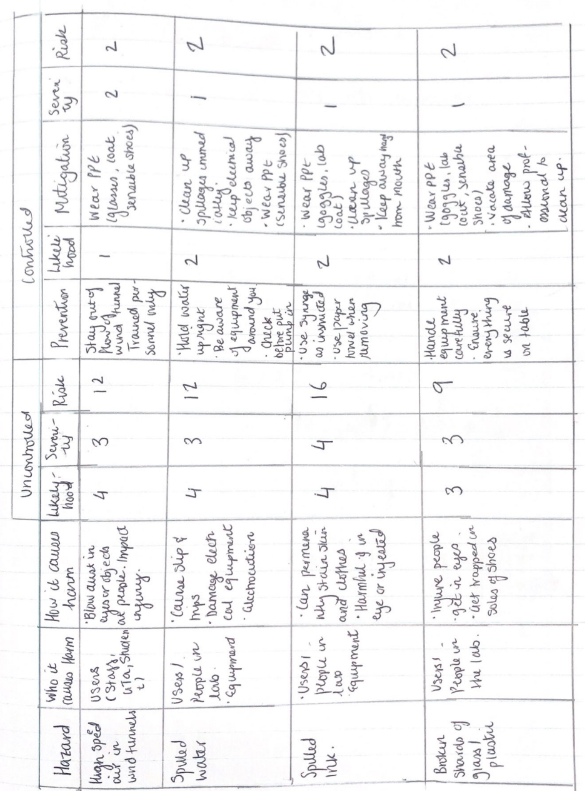 Uncontrolled
Controlled
Hazard
Who it
causes Harm
How it causes
harm
Likely-
hood
Severi-
ty
Risk
Prevention
Likeli
hood
Mitigation
Severi
ty
Risk
High sped
air in
wind tunnels
Users
(Staff,
UTA, Studen
t)
• Blow dust in
eyes or objects
at people. Impact
injury.
4
3
12
Stay out of
flow of
wind tunnel
Trained per-
sonnel only
1
Wear PPE
(glasses, coat,
sensible shoes)
2
2
Spilled
Water
Users/
People in
lab.
• Equipment
• Cause slip &
trips
• Damage electri
cal equipment
• electrocution
4
3
12
• Hold water
upright
• Be aware
of equipment
around you
• Check
before put
pump in
2
• Clean up
spillages immed
iatly
• Keep electrical
objects away
• Wear PPE
(sensible shoes)
1
2
Spilled
Ink.
• Users/ -
people in
lab
Equipment
• Can permena
ntly stain skin
and clothes
• Harmful if in
eye or injected
4
4
16
• Use syringe
as instructed
• use paper
towel when
removing
2
• Wear PPE
(goggles, lab
coat)
• Clean up
spillages
• Keep away
from mouth
1
2
Broken
shards of
glass/
plastic
Users/ -
People in
the lab.
• Injure people
• get in eyes.
• Get trapped in
soles of shoes
3
3
9
• Handle
equipment
carefully
• Ensure
everything
is secure
on table
2
• Wear PPE
(goggles, lab
coat, sensible
shoes)
• Vacate area
of damage
• Allow prof-
essional to
clean up.
1
2